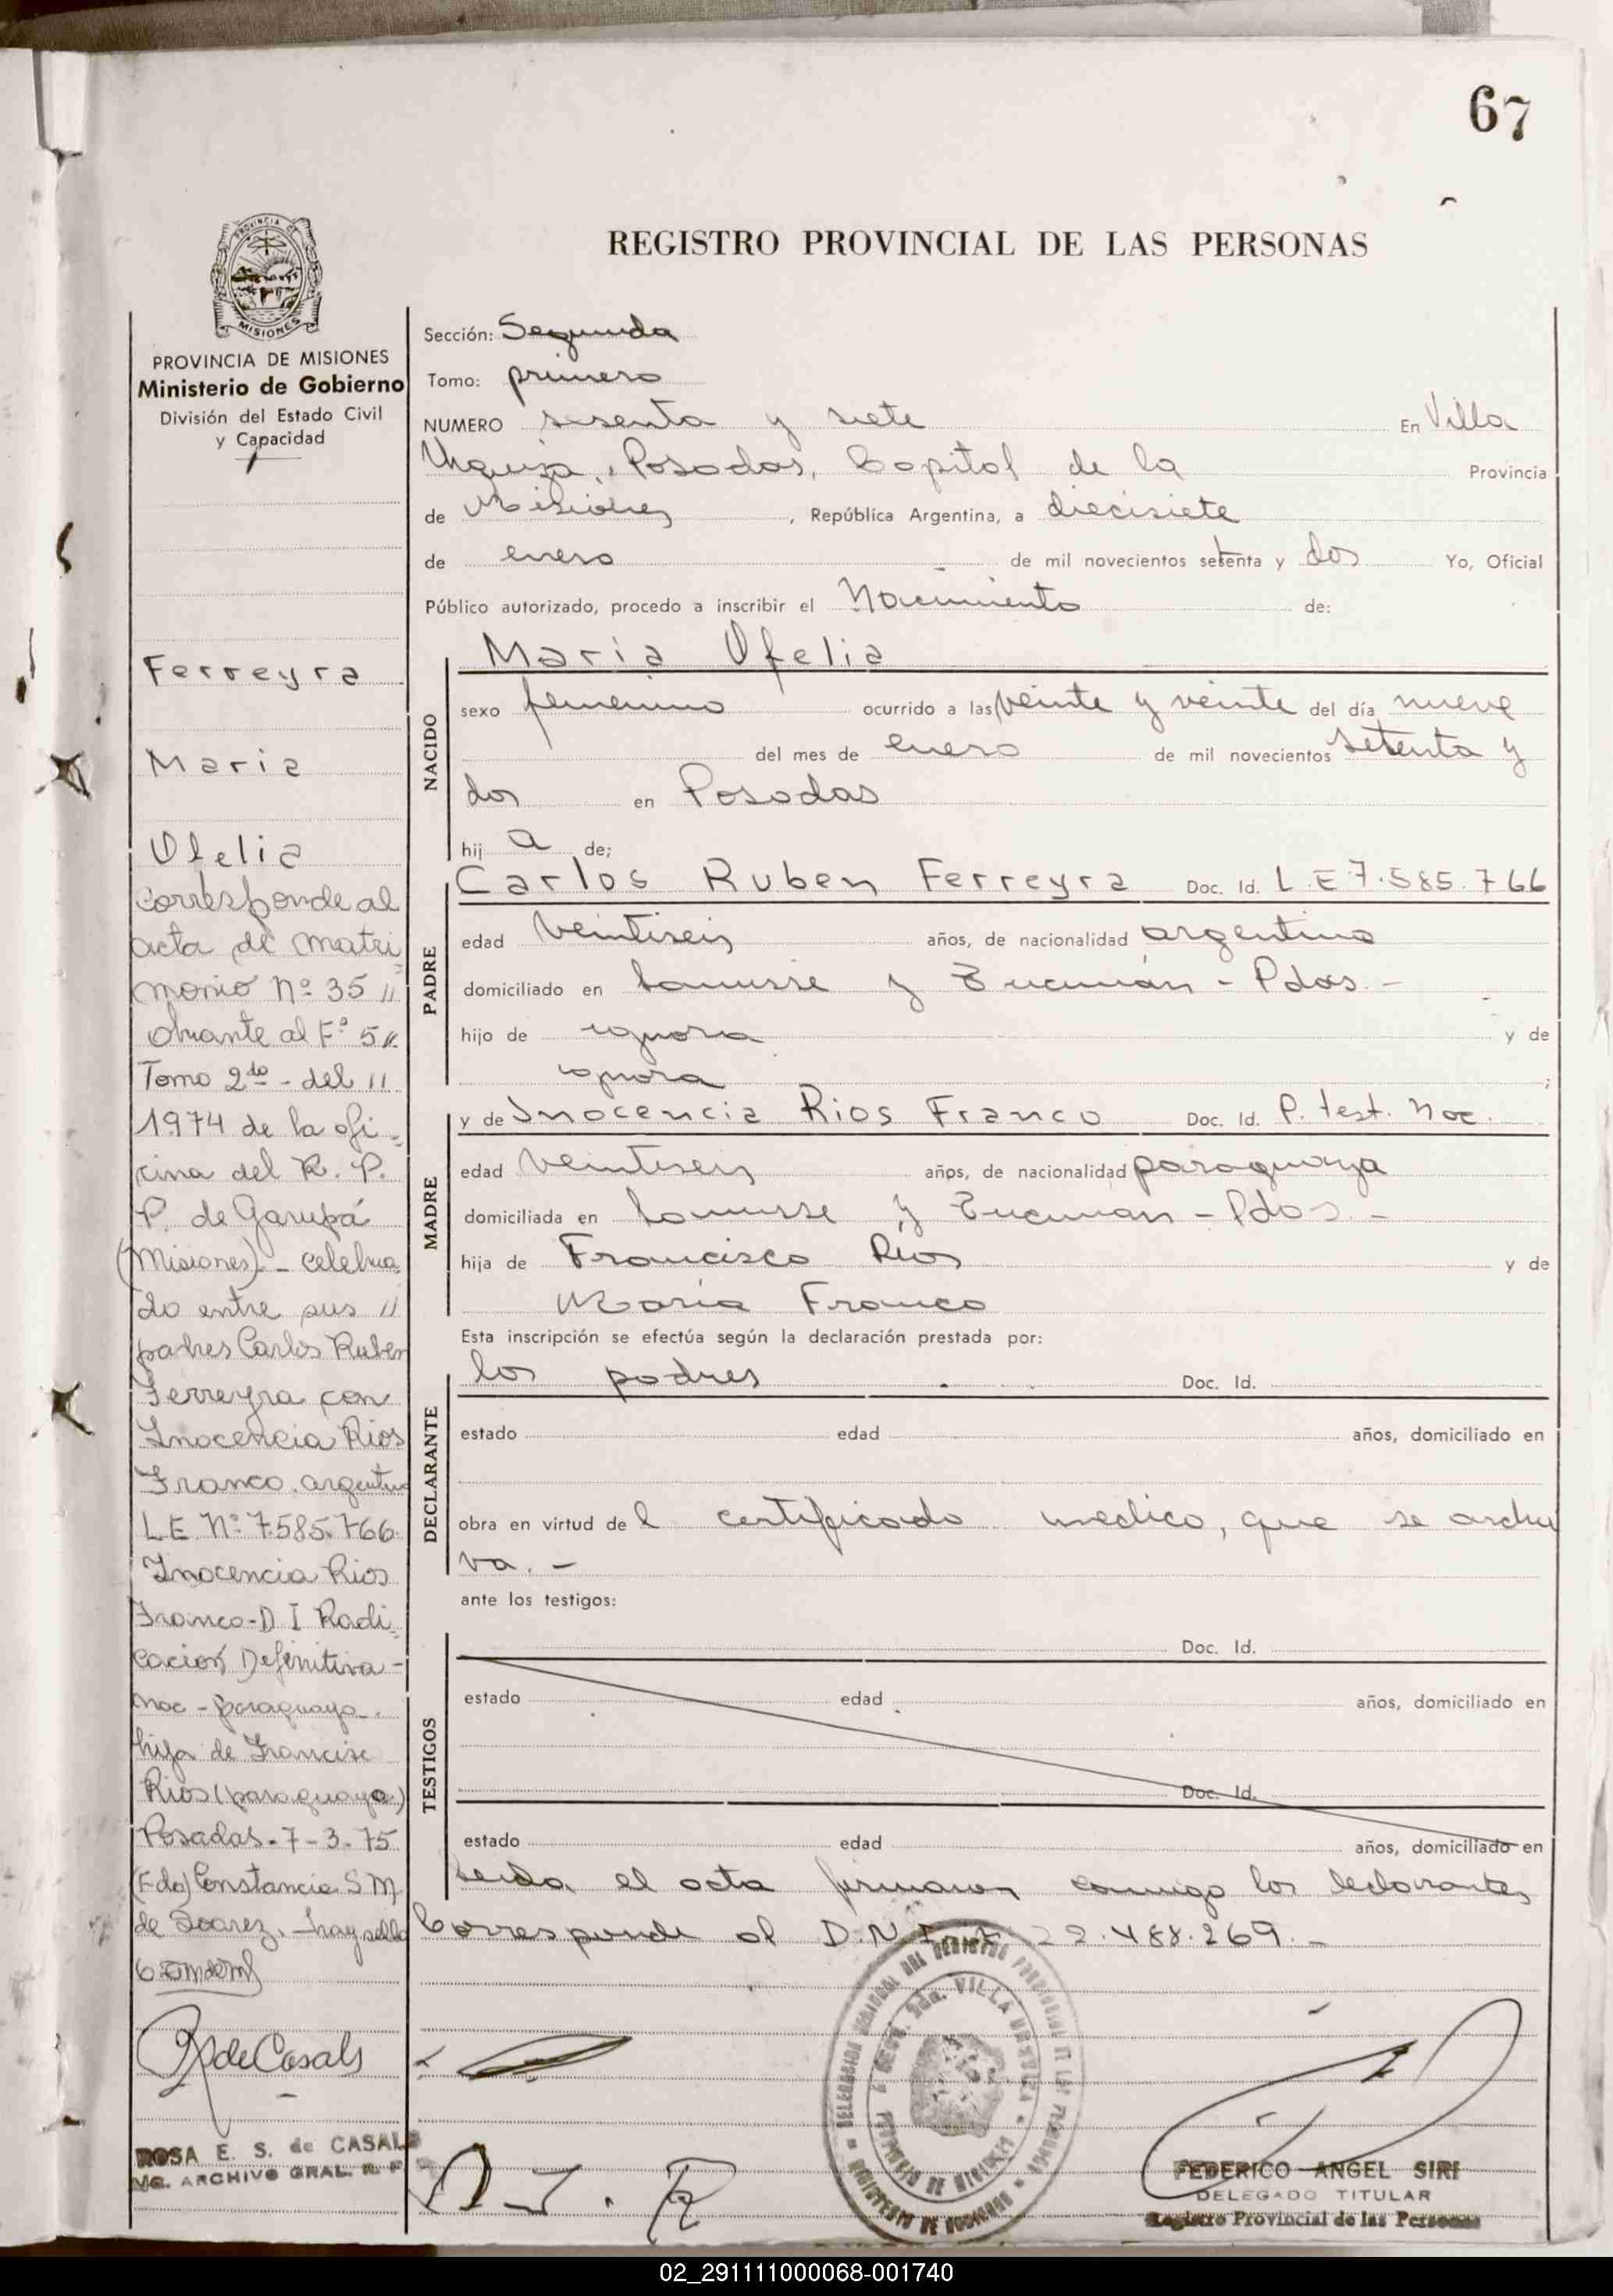 67
REGISTRO PROVINCIAL DE LAS PERSONAS
PROVINCIA DE MISIONES
Ministerio de Gobierno
División del Estado Civil
y Capacidad
Ferreyra
Maria
Ofelia
corresponde al
acta de matri
monio Nº 35 //
obrante al Fº 5 //
Tomo 2do - del //
1974 de la ofi-
cina del R. P.
P. de Garupá
(Misiones) - celebra
do entre sus //
padres Carlos Ruben
Ferreyra con
Inocencia Rios
Franco. argentino
LE Nº 7.585.766.
Inocencia Rios
Franco - D I Radi
cación Definitiva -
nac - paraguaya -.
hija de Francisc
Rios (paraguaya)
Posadas - 7 - 3 - 75
(Fdo) Constancia S M
de Suarez. - hay sello
R de Casals
ROSA E. S. de CASALS
ARCHIVO GRAL. R. P.
Sección: Segunda
Tomo: primero
NUMERO sesenta y siete En Villa
Urquiza, Posadas, Capital de la Provincia
de Misiones, República Argentina, a diecisiete
de enero de mil novecientos setenta y dos Yo, Oficial
Público autorizado, procedo a inscribir el Nacimiento de:
NACIDO
Maria Ofelia
sexo femenino ocurrido a las veinte y veinte del día nueve
del mes de enero de mil novecientos setenta y
dos en Posadas
hij a de;
PADRE
Carlos Ruben Ferreyra Doc. Id. L.E 7.585.766
edad veintiseis años, de nacionalidad argentino
domiciliado en Lanusse y Tucumán - Pdas. -
hijo de ignora y de
ignora ;
MADRE
y de Inocencia Rios Franco Doc. Id. P. test. Nac.
edad veintiseis años, de nacionalidad paraguaya
domiciliada en Lanusse y Tucuman - Pdas. -
hija de Francisco Rios y de
María Franco
Esta inscripción se efectúa según la declaración prestada por:
DECLARANTE
los padres Doc. Id.
estado edad años, domiciliado en
obra en virtud de l certificado medico, que se archi
va. -
ante los testigos:
TESTIGOS
Doc. Id.
estado edad años, domiciliado en
Doc. Id.
estado edad años, domiciliado en
Leida el acta firmaron conmigo los declarantes
Corresponde al D.N.I. 22.488.269. -
FEDERICO ANGEL SIRI
DELEGADO TITULAR
Registro Provincial de las Personas
02_291111000068-001740